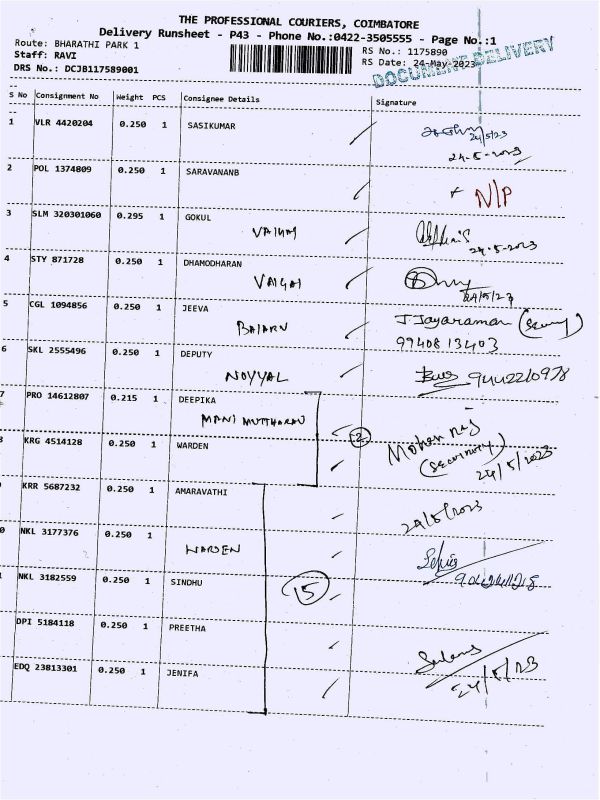 THE PROFESSIONAL COURIERS, COIMBATORE
Delivery Runsheet - P43 - Phone No.:0422-3505555 - Page No.:1
Route: BHARATHI PARK 1
RS No.: 1175890
Staff: RAVI
RS Date: 24-May-2023
DRS No.: DCJB117589001
DOCUMENT DELIVERY
S No Consignment No Weight PCS Consignee Details Signature
1 VLR 4420204 0.250 1 SASIKUMAR
24/5/23
24-5-2023
2 POL 1374809 0.250 1 SARAVANANB
N/P
3 SLM 320301060 0.295 1 GOKUL
VAIGAI
24-5-2023
4 STY 871728 0.250 1 DHAMODHARAN
VAIGAI
24/5/23
5 CGL 1094856 0.250 1 JEEVA
J.Jayaraman
99408 13403
6 SKL 2555496 0.250 1 DEPUTY
NOYYAL
9442210978
7 PRO 14612807 0.215 1 DEEPIKA
MANI MUTTHARAU
2
KRG 4514128 0.250 1 WARDEN
Mohan raj
(Security)
24/5/2023
KRR 5687232 0.250 1 AMARAVATHI
24/5/2023
0 NKL 3177376 0.250 1
WARDEN
1 NKL 3182559 0.250 1 SINDHU
15
DPI 5184118 0.250 1 PREETHA
EDQ 23813301 0.250 1 JENIFA
24/5/23